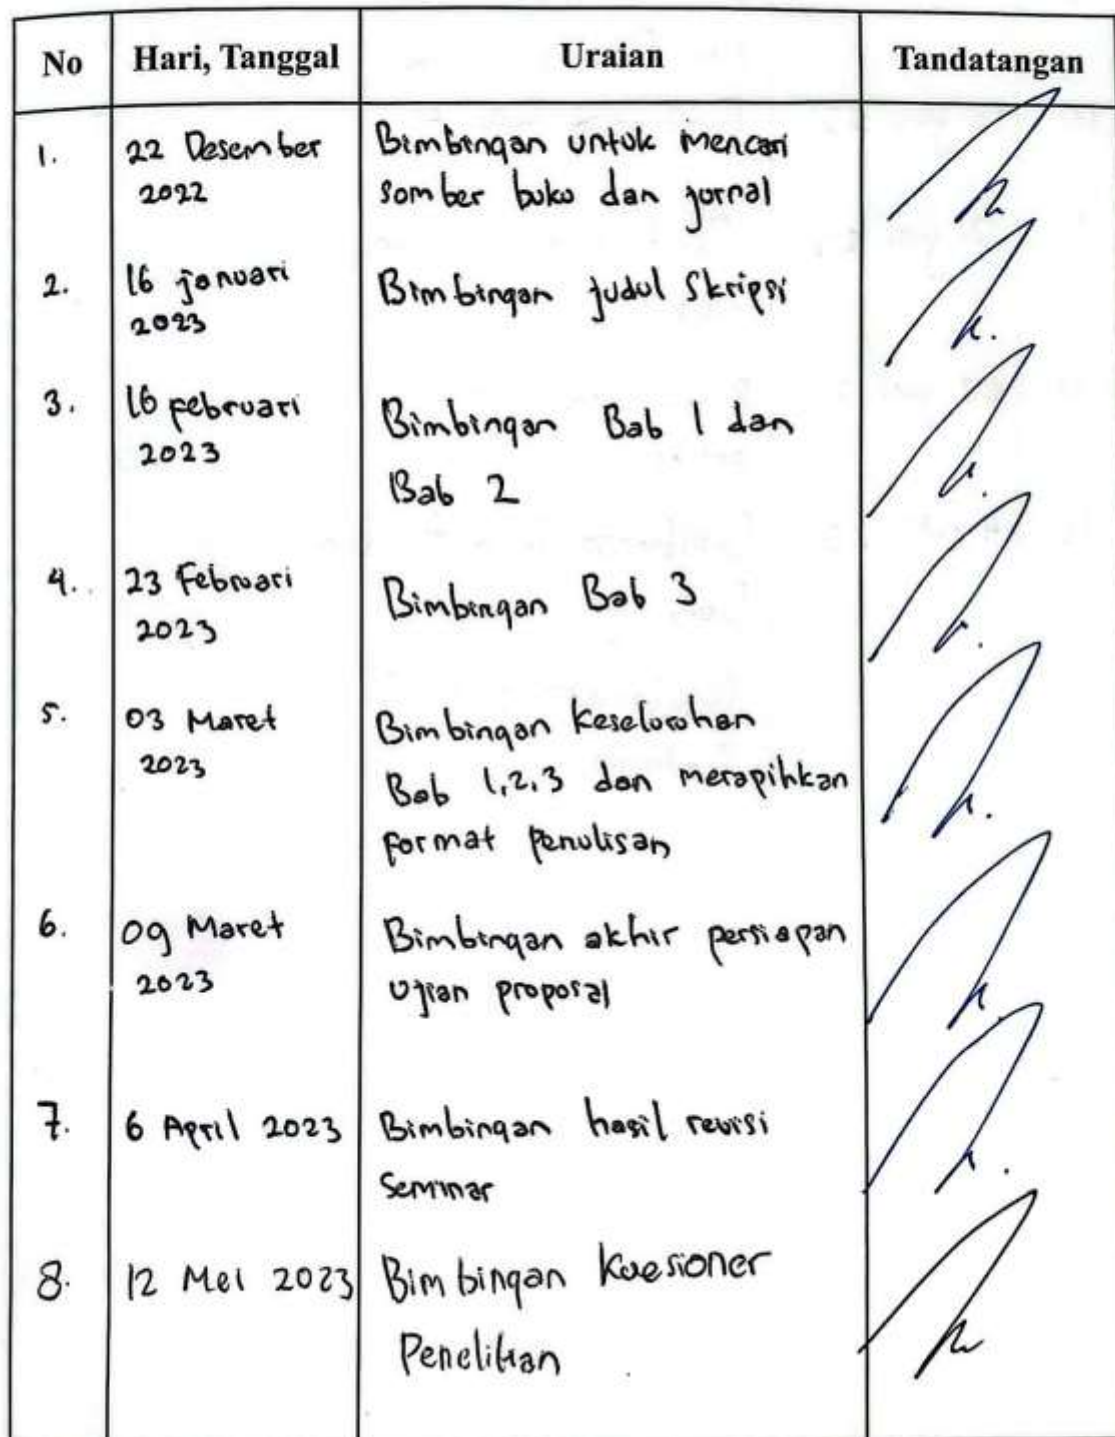 No Hari, Tanggal Uraian Tandatangan
1. 22 Desember Bimbingan untuk mencari
2022 sumber buku dan jurnal
2. 16 januari Bimbingan judul Skripsi
2023
3. 16 februari Bimbingan Bab 1 dan
2023 Bab 2
4. 23 Februari Bimbingan Bab 3
2023
5. 03 Maret Bimbingan keseluruhan
2023 Bab 1,2,3 dan merapihkan
format penulisan
6. 09 Maret Bimbingan akhir persiapan
2023 ujian proposal
7. 6 April 2023 Bimbingan hasil revisi
Seminar
8. 12 Mei 2023 Bimbingan Kuesioner
Penelitian